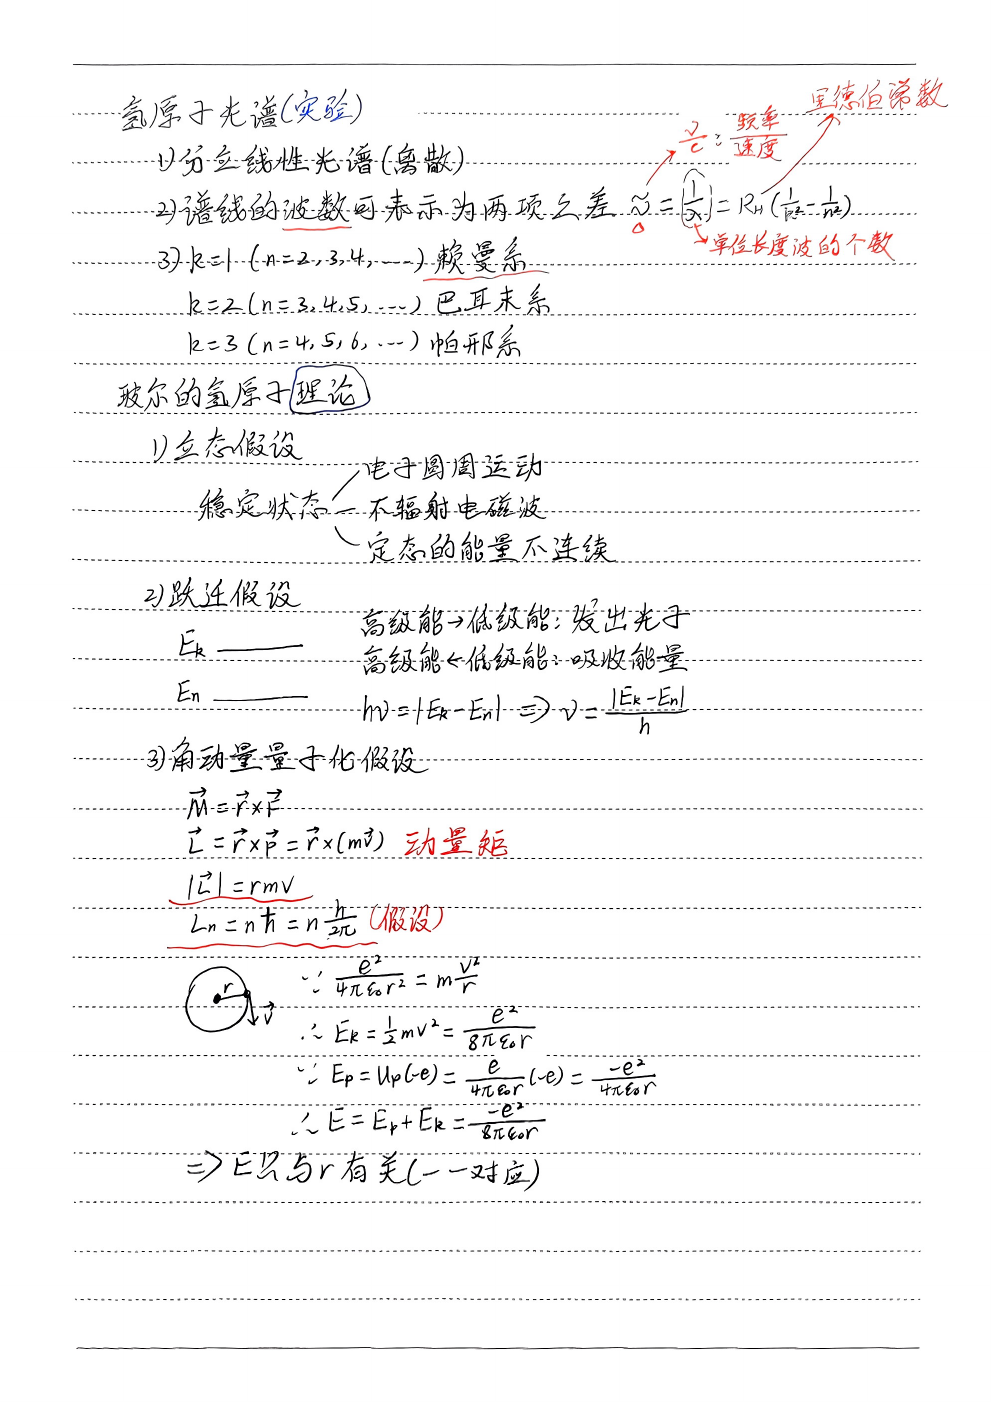 氢原子光谱(实验)
里德伯常数
ν/c : 频率/速度
1)分立线性光谱(离散)
2)谱线的波数可表示为两项之差 ṽ = (1/λ) = R_H (1/k² - 1/n²)
单位长度波的个数
3) k=1 (n=2,3,4,⋯) 赖曼系
k=2 (n=3,4,5,⋯) 巴耳末系
k=3 (n=4,5,6,⋯) 帕邢系
玻尔的氢原子理论
1)立态假设
电子圆周运动
稳定状态 — 不辐射电磁波
定态的能量不连续
2)跃迁假设
高级能→低级能: 发出光子
E_k
高级能←低级能: 吸收能量
E_n
hν = |E_k - E_n| ⇒ ν = |E_k - E_n|/h
3)角动量量子化假设
M⃗ = r⃗ × F⃗
L⃗ = r⃗ × P⃗ = r⃗ × (mv⃗) 动量矩
|L⃗| = rmv
L_n = nħ = n h/2π (假设)
∵ e²/4πε₀r² = m v²/r
r
v⃗
∴ E_k = ½mv² = e²/8πε₀r
∵ E_p = U_p(-e) = e/4πε₀r (-e) = -e²/4πε₀r
∴ E = E_p + E_k = -e²/8πε₀r
⇒ E只与r有关(一一对应)